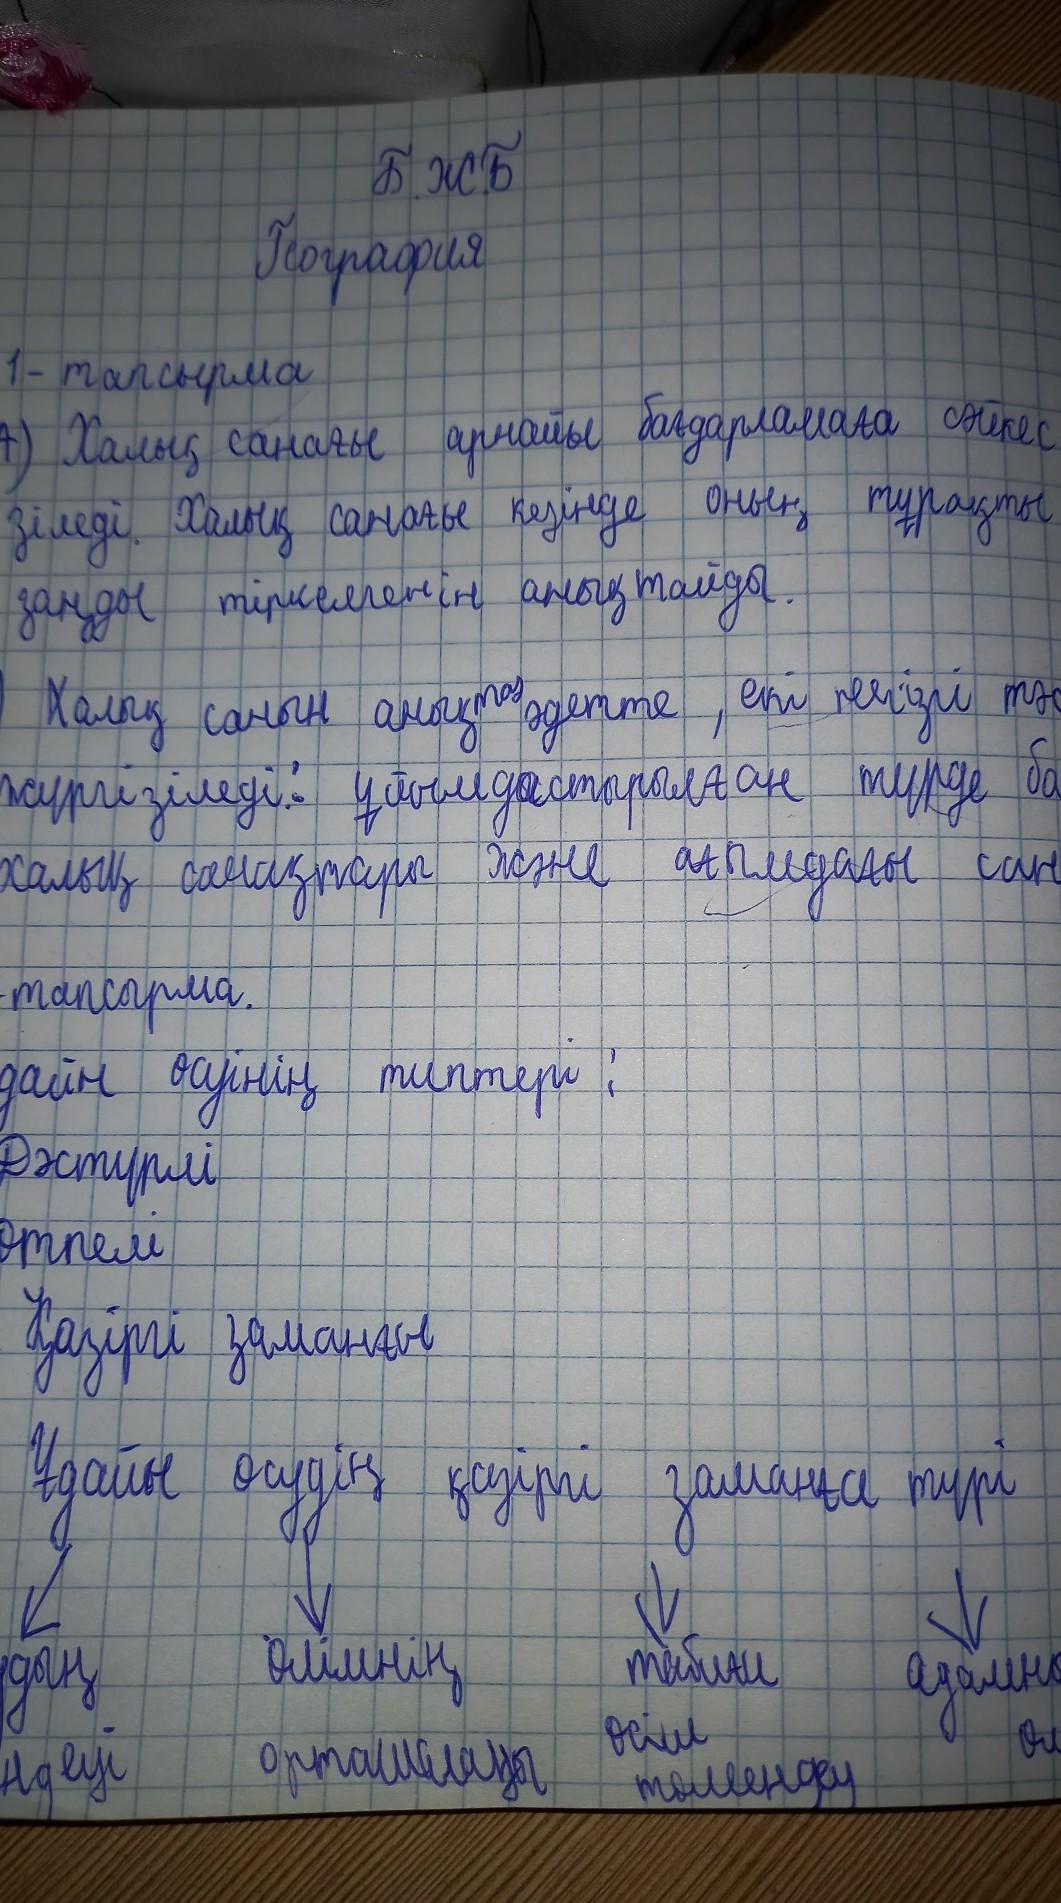 БЖБ
География
1-тапсырма
А) Халық санағы арнайы бағдарламаға сәйкес
зіледі. Халық санағы кезінде оның тұрақты
заңды тіркелгенін анықтайды.
) Халық санын анықтау әдетте, екі негізгі тәс
жүргізіледі: ұйымдастырылған түрде ба
халық санақтары және ағымдағы сан
-тапсырма.
дайн өсуінің типтері:
Дәстүрлі
өтпелі
Қазіргі заманғы
Ұдайы өсудің қазіргі заманға түрі
дың өлімнің табиғи адамны
ндеуі орташалауы өсім төмендеу өл